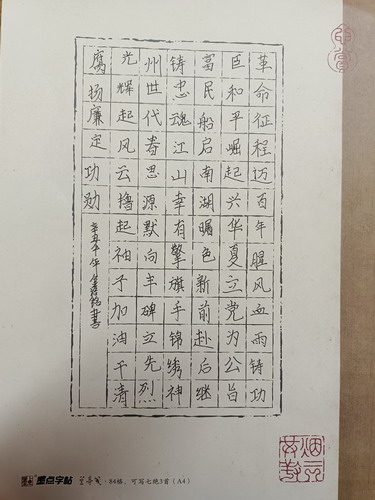 革命征程迈百年腥风血雨铸功
臣和平崛起兴华夏立党为公旨
富民船启南湖曙色新前赴后继
铸忠魂江山幸有擎旗手锦绣神
州世代春思源默向丰碑立先烈
光辉起风云撸起袖子加油干清
腐扬廉定功勋
辛丑年
墨点字帖 84格,可写七绝3首(A4)